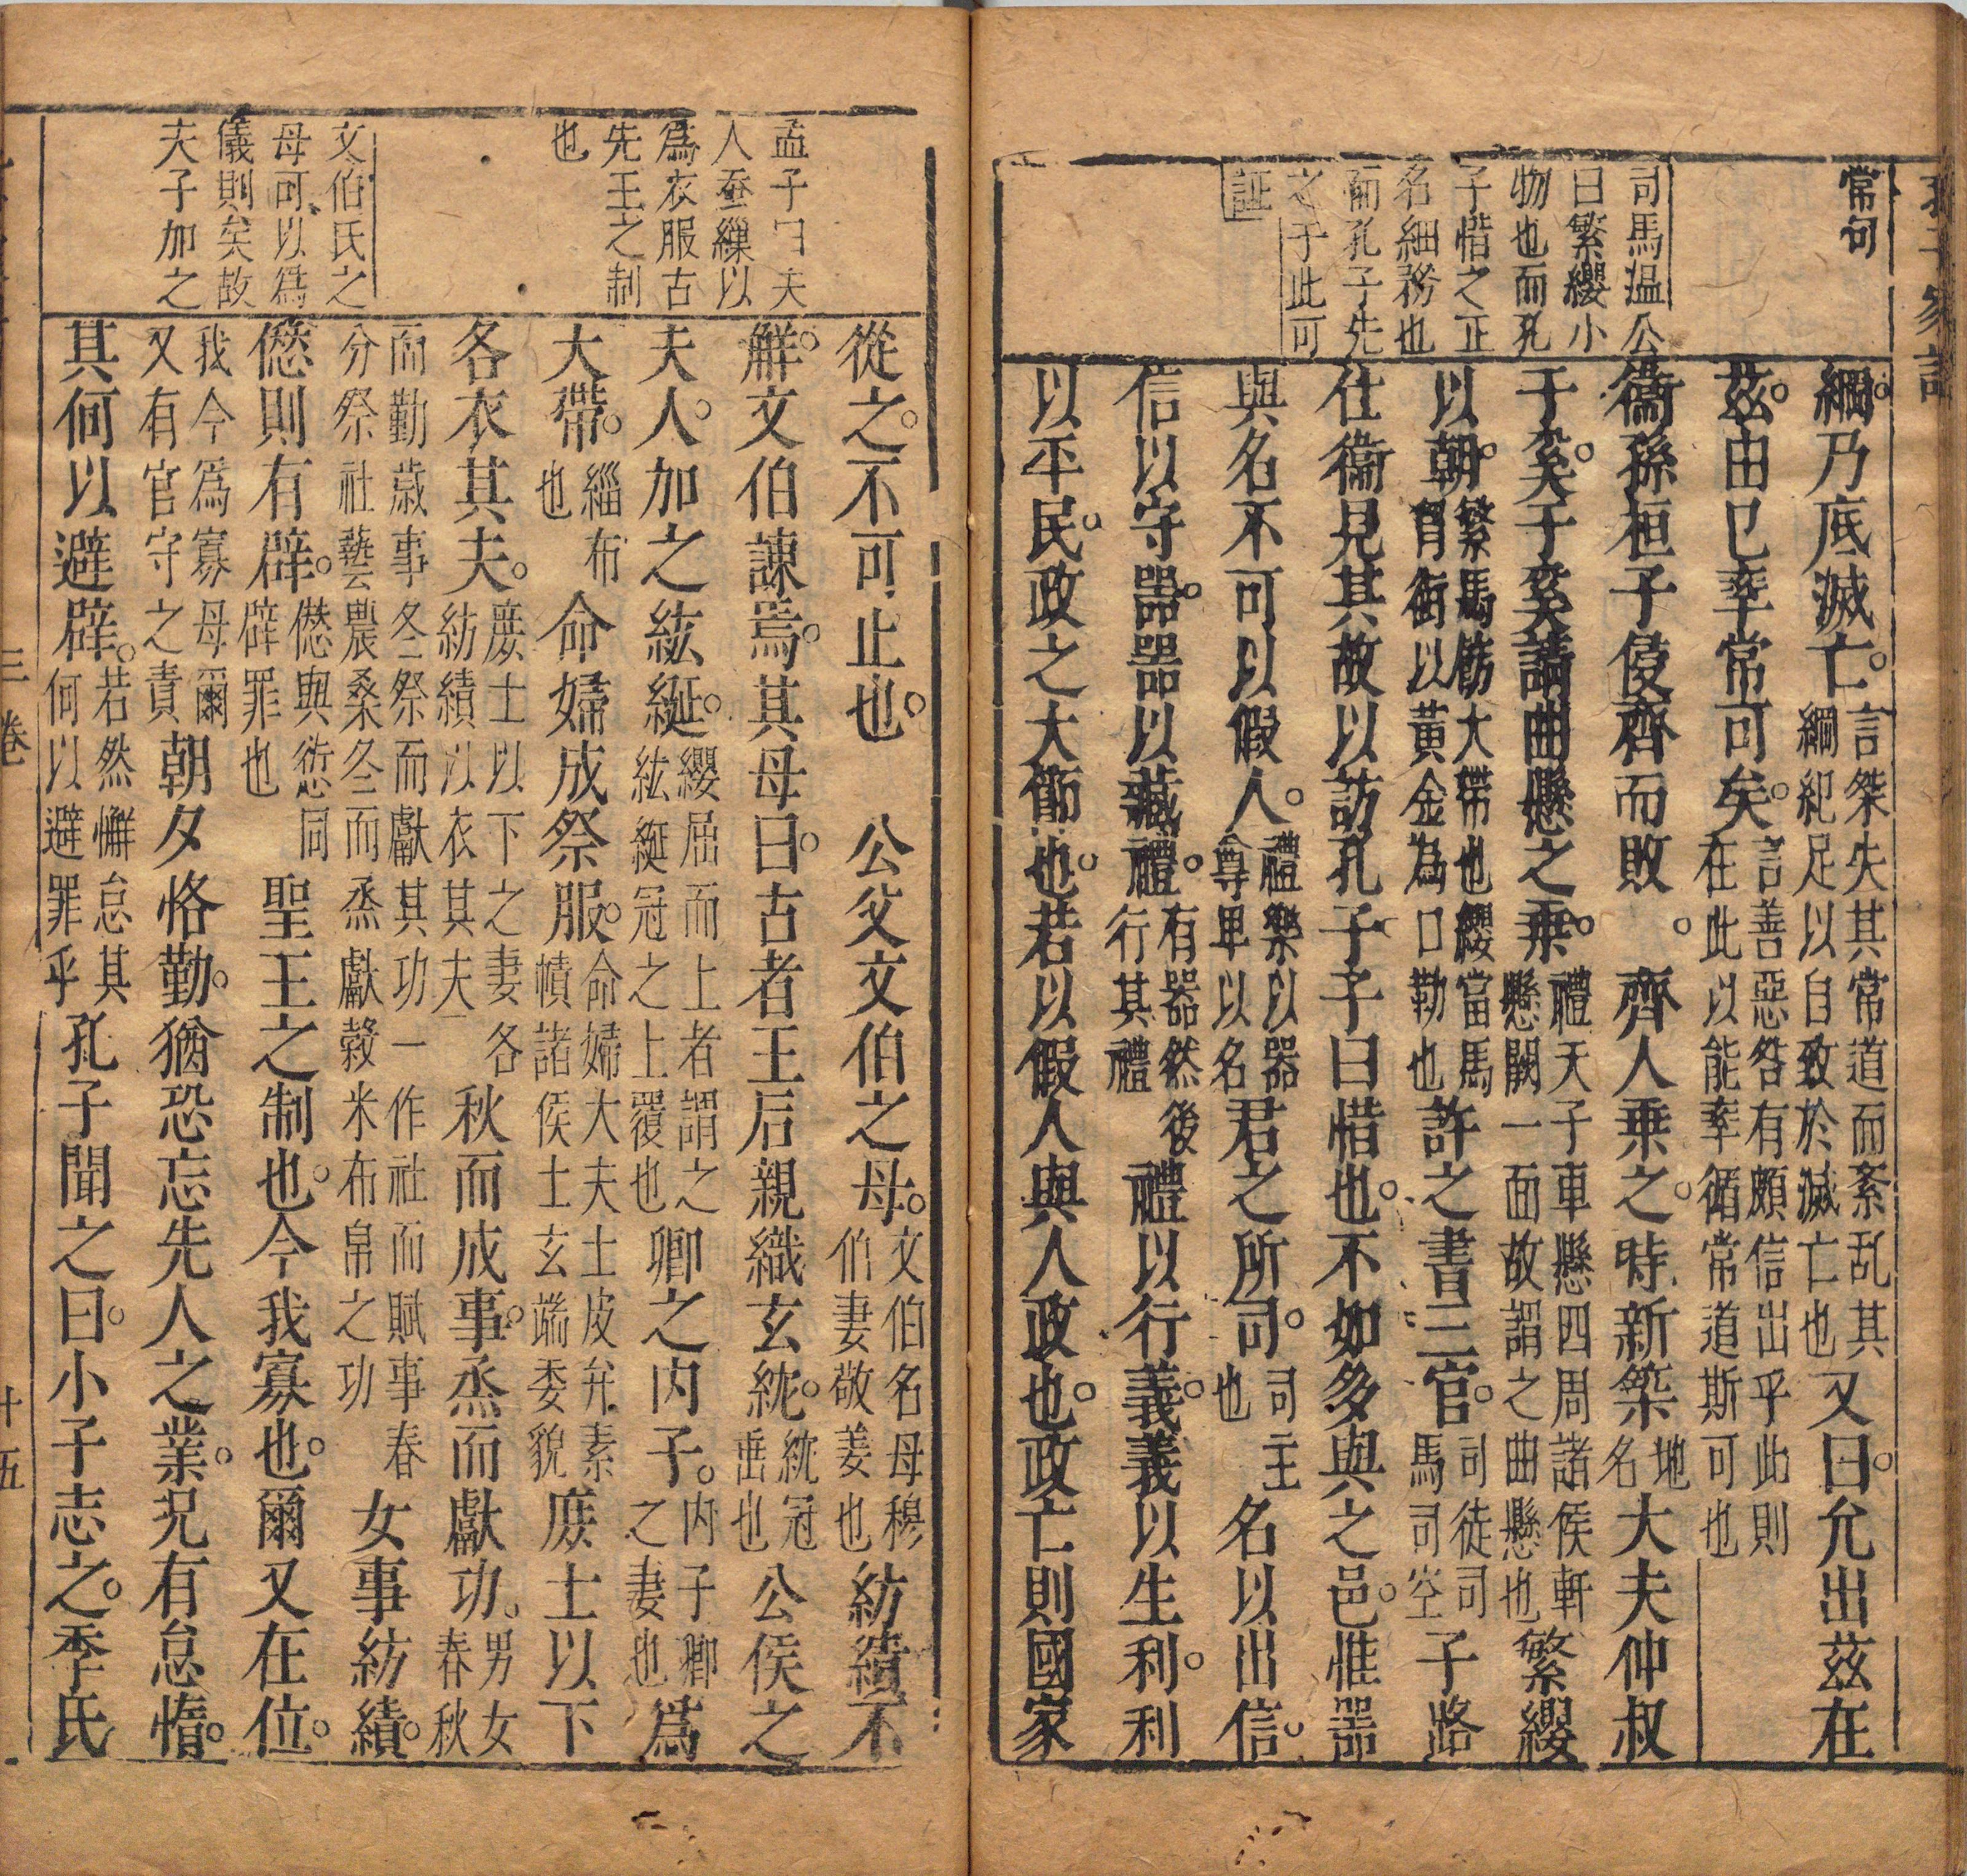 孔子家語
常句
司馬溫公
曰繁纓小
物也而孔
子惜之正
名細務也
而孔子先
之于此可
証
綱乃底滅亡言桀失其常道而紊乱其
綱紀足以自致於滅亡也又曰允出茲在
茲由已率常可矣言善惡咎有頗信出乎此則
在此以能率循常道斯可也
衞孫桓子侵齊而敗齊人乗之時新築地名大夫仲叔
于奚于奚請曲懸之乗禮天子車懸四周諸侯軒
懸闕一面故謂之曲懸也繁纓
以朝繁馬飾大帶也纓當馬
膺銜以黃金為口勒也許之書三官司徒司
馬司空子路
仕衞見其故以訪孔子子曰惜也不如多與之邑惟器
與名不可以假人禮樂以器
尊卑以名君之所司司主
也名以出信
信以守器器以藏禮有器然後
行其禮禮以行義義以生利利
以平民政之大節也若以假人與人政也政亡則國家
孟子曰夫
人蚕繅以
爲衣服古
先王之制
也
文伯氏之
母可以爲
儀則矣故
夫子加之
從之不可止也　公父文伯之母文伯名母穆
伯妻敬姜也紡績不
解文伯諫焉其母曰古者王后親織玄紞紞冠
垂也公侯之
夫人加之紘綖纓屈而上者謂之
紘綖冠之上覆也卿之內子內子卿
之妻也爲
大帶緇布
也命婦成祭服命婦大夫士皮弁素
幘諸侯士玄端委貌庶士以下
各衣其夫庶士以下之妻各
紡績以衣其夫秋而成事烝而獻功男女
春秋
而勤歲事冬祭而獻其功一作社而賦事春
分祭社藝農桑冬而烝獻穀米布帛之功女事紡績
愆則有辟愆與諐同
辟罪也聖王之制也今我寡也爾又在位
我今爲寡母爾
又有官守之責朝夕恪勤猶恐忘先人之業況有怠惰
其何以避辟若然懈怠其
何以避罪乎孔子聞之曰小子志之季氏
三卷
十五